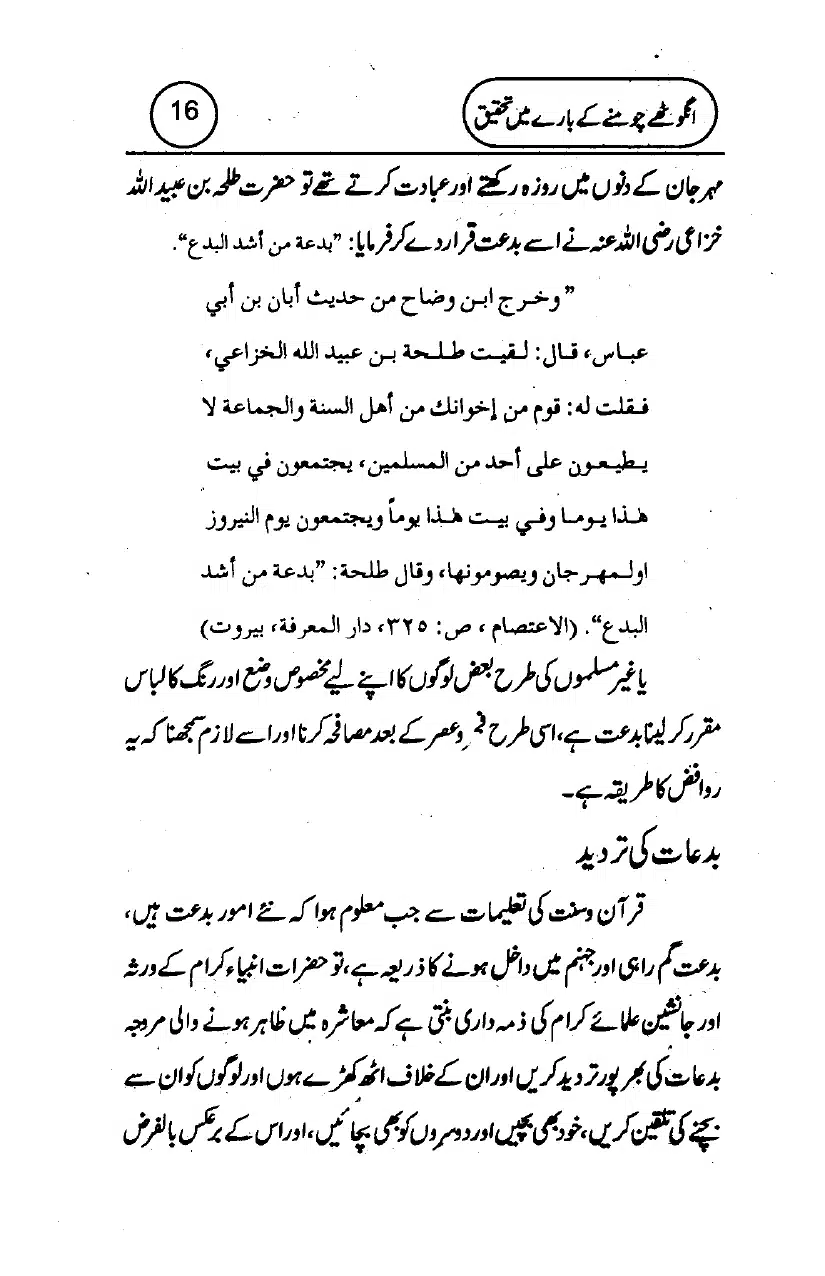 16
انگوٹھے چومنے کے بارے میں تحقیق
مہرجان کے دنوں میں روزہ رکھتے اور عبادت کرتے تھے تو حضرت طلحہ بن عبید اللہ
خزاعی رضی اللہ عنہ نے اسے بدعت قرار دے کر فرمایا: ”بدعة من أشد البدع“.
”وخرج ابن وضاح من حديث أبان بن أبي
عباس، قال: لقيت طلحة بن عبيد الله الخزاعي،
فقلت له: قوم من إخوانك من أهل السنة والجماعة لا
يطيعون على أحد من المسلمين، يجتمعون في بيت
هذا يوما وفي بيت هذا يوماً ويجتمعون يوم النيروز
اولمهرجان ويصومونها، وقال طلحة: ”بدعة من أشد
البدع“. (الاعتصام ، ص: ٣٢٥، دار المعرفة، بيروت)
یا غیر مسلموں کی طرح بعض لوگوں کا اپنے لیے مخصوص وضع اور رنگ کا لباس
مقرر کر لینا بدعت ہے، اسی طرح فجر وعصر کے بعد مصافحہ کرنا اور اسے لازم سمجھنا کہ یہ
روافض کا طریقہ ہے۔
بدعات کی تردید
قرآن وسنت کی تعلیمات سے جب معلوم ہوا کہ نئے امور بدعت ہیں،
بدعت گم راہی اور جہنم میں داخل ہونے کا ذریعہ ہے، تو حضرات انبیاء کرام کے ورثہ
اور جانشین علمائے کرام کی ذمہ داری بنتی ہے کہ معاشرہ میں ظاہر ہونے والی مروجہ
بدعات کی بھرپور تردید کریں اور ان کے خلاف اٹھ کھڑے ہوں اور لوگوں کو ان سے
بچنے کی تلقین کریں، خود بھی بچیں اور دوسروں کو بھی بچائیں، اور اس کے برعکس بالفرض